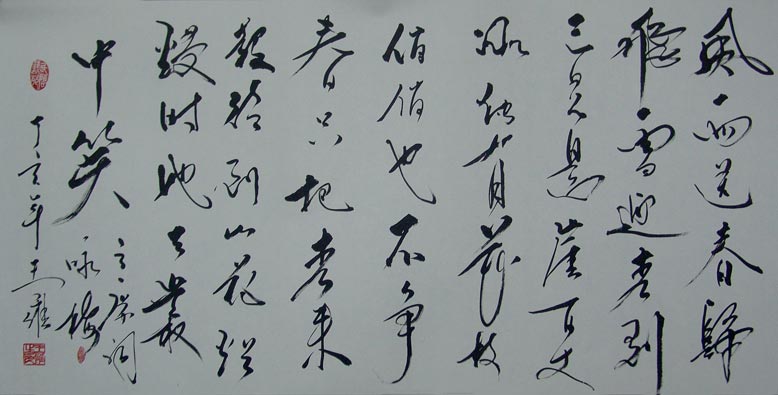 風雨送春歸
飛雪迎春到
已是悬崖百丈
冰猶有花枝
俏俏也不争
春只把春来
報待到山花烂
熳时她在叢
中笑
主席词
咏梅
丁亥年王